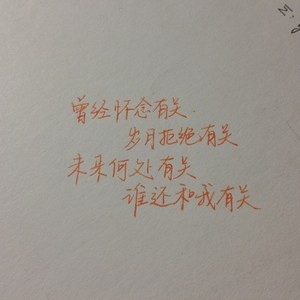 曾经怀念有关
岁月拒绝有关
未来何处有关
谁还和我有关
M.